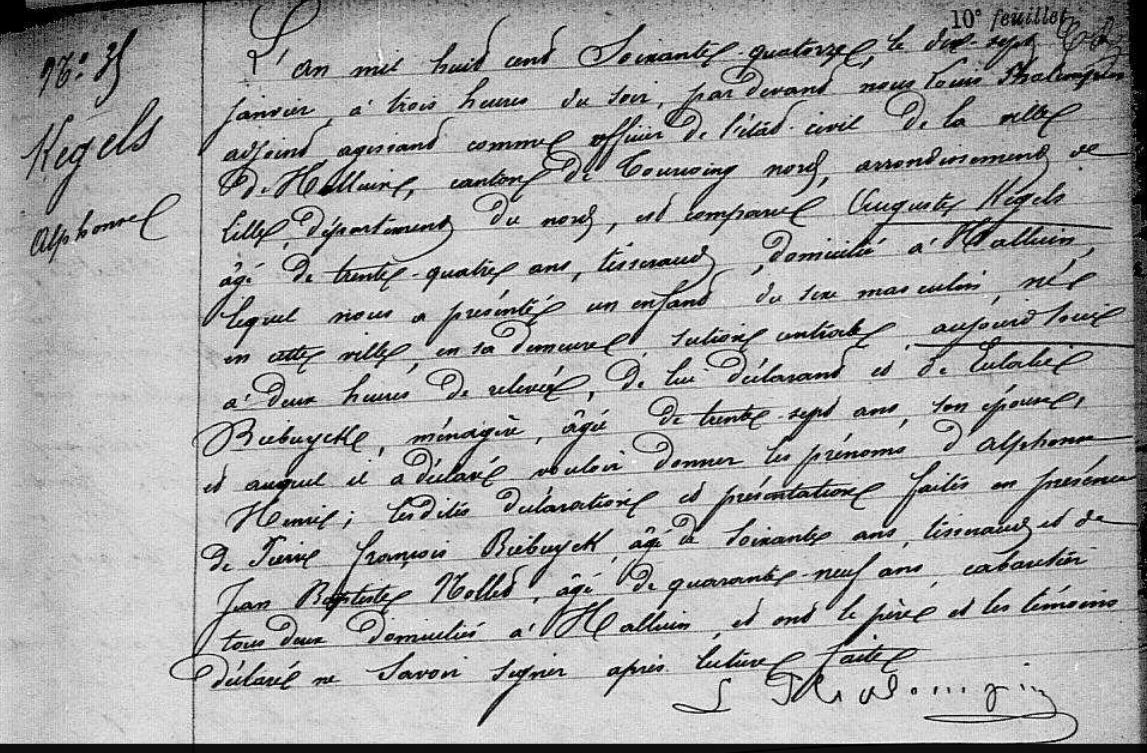 10e feuillet
No 35
Kegels
Alphonse
L'an mil huit cent Soixante quatorze, le dix-sept
janvier, à trois heures du soir, par devant nous Louis
adjoint agissant comme officier de l'état-civil de la ville
de Halluin, canton de Tourcoing nord, arrondissement de
Lille, département du nord, est comparu Auguste Kegels
âgé de trente-quatre ans, tisserand, domicilié à Halluin,
lequel nous a présenté un enfant du sexe masculin, né
en cette ville, en sa demeure, section centrale, aujourd'hui
à deux heures de relevée, de lui déclarant et de Eulalie
Biebuyck, ménagère, âgée de trente-sept ans, son épouse,
et auquel il a déclaré vouloir donner les prénoms d'Alphonse
Henri; lesdites déclaration et présentation faites en présence
de Pierre François Biebuyck, âgé de soixante ans, tisserand et de
Jean Baptiste Nollet, âgé de quarante-neuf ans, cabaretier
tous deux domiciliés à Halluin, et ont le père et les témoins
déclaré ne savoir signer après lecture faite